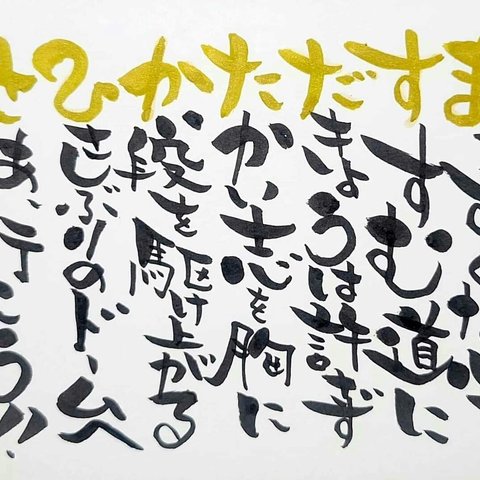 ますだたかひさ
すむ道に
きょうは許ず
かい志を胸に
い段を駆け上がる
さしぶりのドームへ
あ、行こう!!